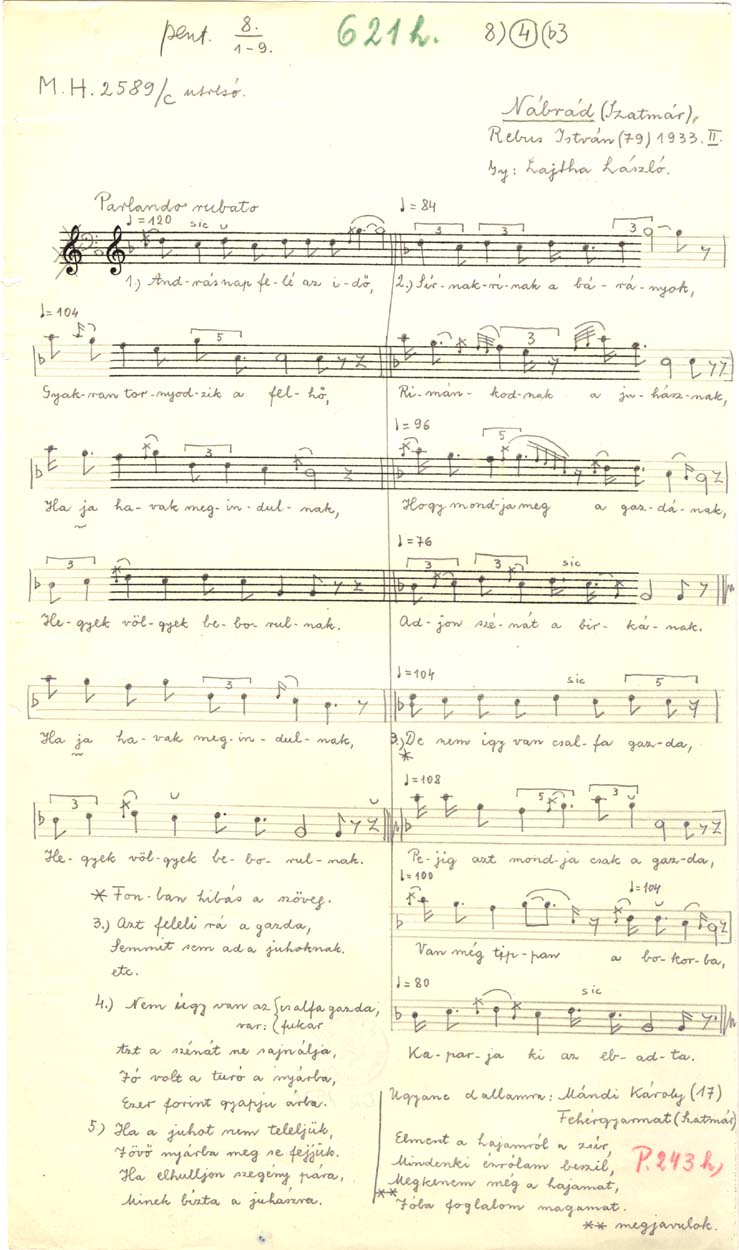 pent. 8. 621h. 8) 4 (b3
1-9.
M.H. 2589/c utolsó.
Nábrád (Szatmár),
Rebus István (79) 1933. II.
Gy: Lajtha László.
Parlando rubato
♩=120 sic
♩=84
3 3 3
1.) And-rásnap fe-lé az i-dő,
2.) Sír-nak-rí-nak a bá-rá-nyok,
♩=104
5
3
Gyak-ran tor-nyod-zik a fel-hő,
Ri-mán-kod-nak a ju-hász-nak,
♩=96
3
5
Ha ja ha-vak meg-in-dul-nak,
Hogy mond-ja meg a gaz-dá-nak,
♩=76
3
3 3 sic
He-gyek völ-gyek be-bo-rul-nak.
Ad-jon szé-nát a bir-ká-nak.
♩=104
3
sic 5
Ha ja ha-vak meg-in-dul-nak,
3.) De nem igy van csal-fa gaz-da,
*
♩=108
3
5 3
He-gyek völ-gyek be-bo-rul-nak.
Pe-jig azt mond-ja csak a gaz-da,
♩=100 ♩=104
Van még tip-pan a bo-kor-ba,
♩=80
sic
Ka-par-ja ki az eb-ad-ta.
* Fon-ban hibás a szöveg.
3.) Azt feleli rá a gazda,
Semmit sem ad a juhoknak.
etc.
4.) Nem úgy van az {csalfa gazda,
var: {fukar
Azt a szénát ne sajnálja,
Jó volt a turó a nyárba,
Ezer forint gyapju árba.
5.) Ha a juhot nem teleljük,
Jövő nyárba meg se fejjük.
Ha elhulljon szegény pára,
Minek bízta a juhászra.
Ugyane dallamra: Mándi Károly (17)
Fehérgyarmat (Szatmár)
Elment a hajamról a zsír,
Mindenki énrólam beszil,
Megkenem még a hajamat,
** Jóba foglalom magamat.
P.243h,
** megjavulok.